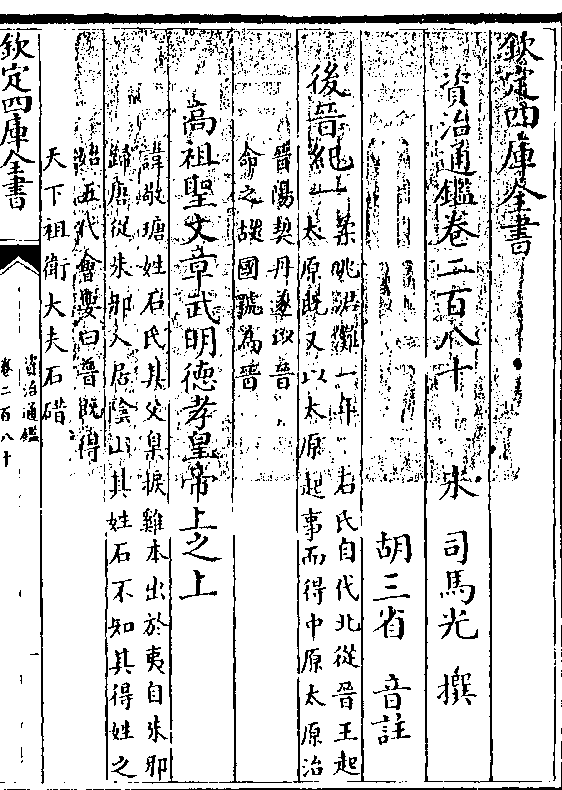 欽定四庫全書
資治通鑑卷二百八十 宋 司馬光 撰
胡三省 音註
後晉紀一 柔兆涒灘一年 石氏自代北從晉王起
太原既又以太原起事而得中原太原治
晉陽契丹遂以晉
命之故國號為晉
高祖聖文章武明德孝皇帝上之上
諱敬瑭姓石氏其父臬捩雞本出於夷自朱邪
歸唐從朱邪入居陰山其姓石不知其得姓之
始五代會要曰晉既得
天下祖衛大夫石碏
欽定四庫全書
資治通鑑
卷二百八十
一